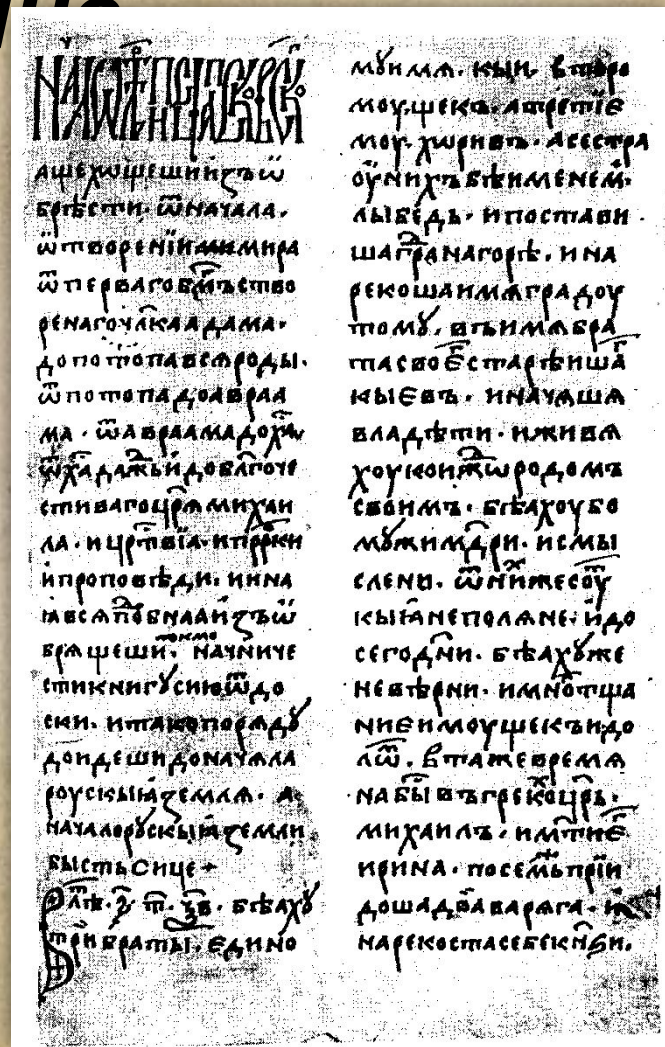 аще хѡщеши изъѡ
брѣсти. ѿ начала.
ѿ творенїи мира
ѿ перваго бм҃ъ ство
ренаго чл҃ка адама.
до потопа вся роды.
ѿ потопа до авраа
ма. ѿ авраама до хⷭ҇а
ѿ х҃а дажь и до бл҃гоче
стиваго цр҃ѧ михаи
ла. и црⷭ҇твїа. и пррⷪ҇ки
и проповѣди. и ина
ꙗ вся подⷪ҇бнаа изъѡ
брѧщеши. токмо начниче
сти книгꙋ сию ѿ до
ски. и тако по рѧдꙋ
доидеши до начѧла
роускыꙗ землѧ. а
начало рꙋскыꙗ земли
бысть сице
В лѣⷮ. ҂ѕ҃. т҃. ѯв. бѣахꙋ
три браты. единo
мꙋ имѧ. кыи. второ
моу. щекъ. а третїе
моу. хѡривъ. а сестра
оу нихъ бѣ именем.
лыбедь. и постави
ша граⷣ на горѣ. и на
рекоша имѧ градоу
томꙋ. въ имѧ бра
та своеⷢ҇ старѣишаⷢ҇
кыевъ. и начѧшѧ
владѣти. и живѧ
хоу коижⷣѡ родомъ
своимъ. бѣахоу бо
мꙋжи мⷣри. и смы
слени. ѿ ниⷯже соуⷮ
кыꙗне полѧне. и до
сегоднⷭ҇и. бѣахꙋ же
невѣрни. и мнѡⷢ҇ тща
ние имоу щекъи до
лѡⷨ. В та же времѧ
на бы въ грекоⷯ цр҃ь.
михаилъ. и мт҃и еⷢ҇
ирина. посемь прїи
доша два варѧга. и
нарекоста себе кн҃ѕи.